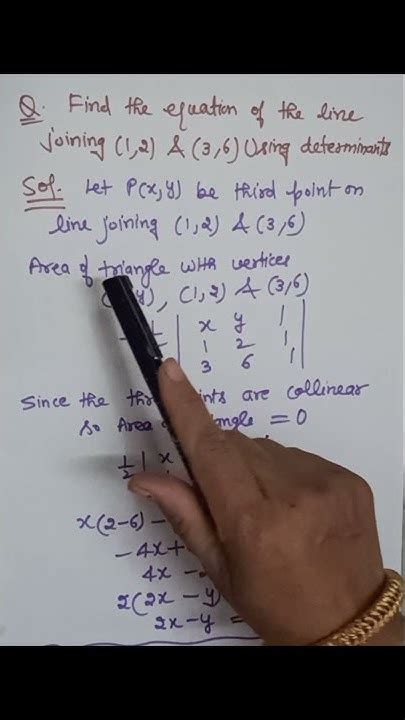 Q. Find the equation of the line
joining (1,2) & (3,6) Using determinants
Sol. Let P(x,y) be third point on
line joining (1,2) & (3,6)
Area of triangle with vertices
y), (1,2) & (3,6)
| x y 1 |
1 2 1
3 6 1
Since the are collinear
so Area = 0
1/2 | x
x(2-6) -
-4x+
4x -
2(2x - y
2x-y =